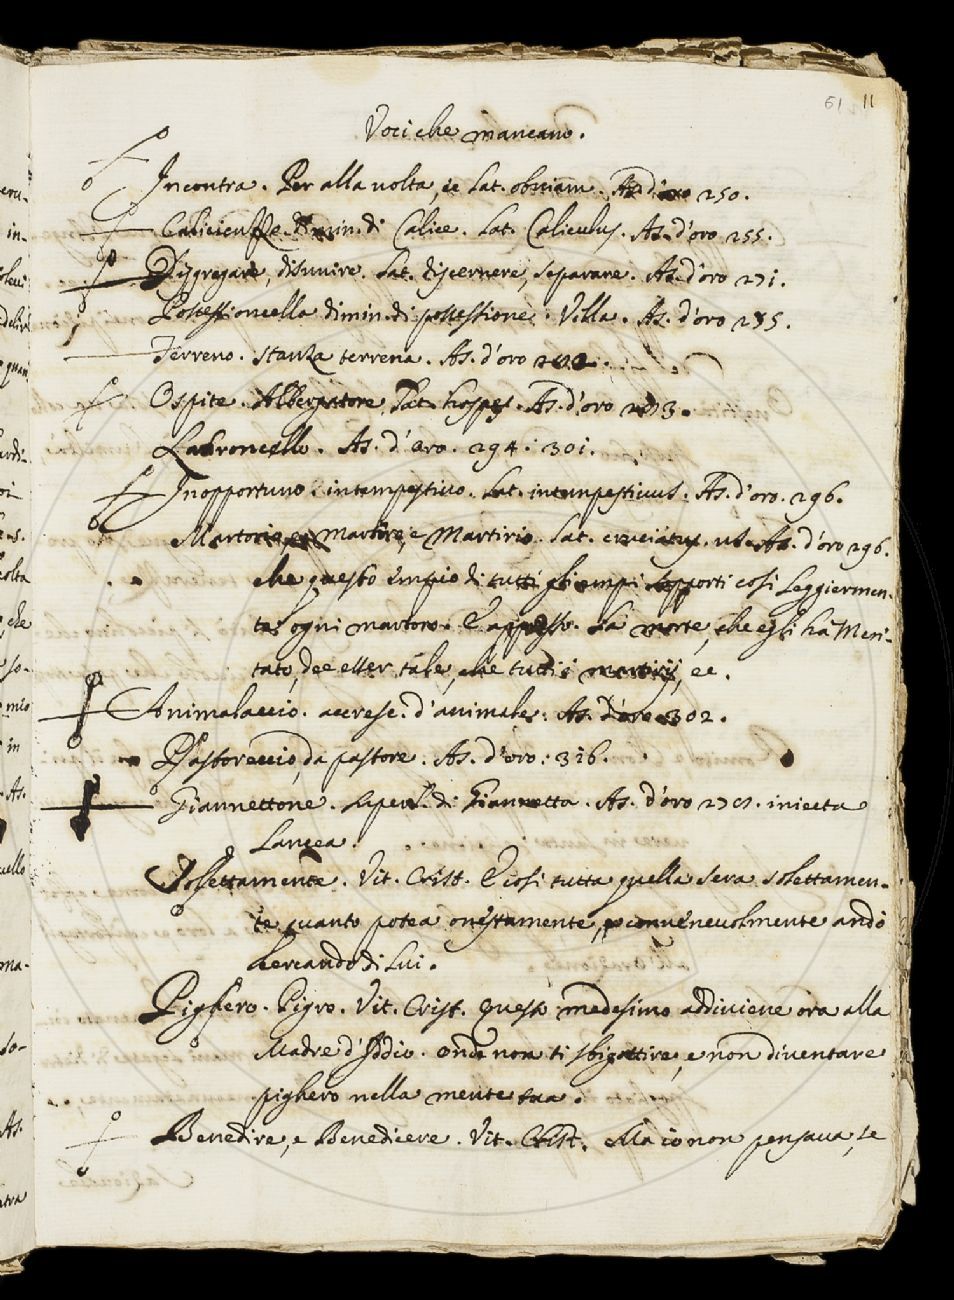 61 11
Voci che mancano.
Incontra. Per alla uolta, ec Lat. obuiam. As. d'oro 250.
dimin. di Calice. Lat. Caliculus. As. d'oro 255.
Disgregare, disunire. Lat. discernere, separare. As. d'oro 271.
Possessioncella dimin. di possessione. Villa. As. d'oro 285.
Terreno. stanza terrena. As. d'oro
Ospite. Albergatore Lat. hospes. As. d'oro 293.
Ladroncello. As. d'oro. 294. 301.
Inopportuno. intempestiuo. Lat. intempestiuus. As. d'oro. 296.
Martorio, martire, e Martirio. Lat. cruciatus. As. d'oro 296.
che questo empio di tutti gli empi sopporti cosi leggiermen-
te ogni martoro. E appresso. La morte, che egli ha meri-
tato, dee esser tale, che tutti i martirij, ec.
Animalaccio. accresc. d'animale. As. d'oro 302.
Pastoraccio, da pastore. As. d'oro. 316.
Giannettone. superl. di Giannetta. As. d'oro iniecta
Lancea.
Solettamente. Vit. Crist. E cosi tutta quella sera solettamen-
te quanto potea onestamente, e conueneuolmente andò
cercando di Lui.
Pighero. Pigro. Vit. Crist. Questo medesimo addiuiene ora alla
Madre d'Iddio. onde non ti sbigottire, e non diuentare
pighero nella mente tua.
Benedire, e Benedicere. Vit. Crist. Ma io non pensaua, se